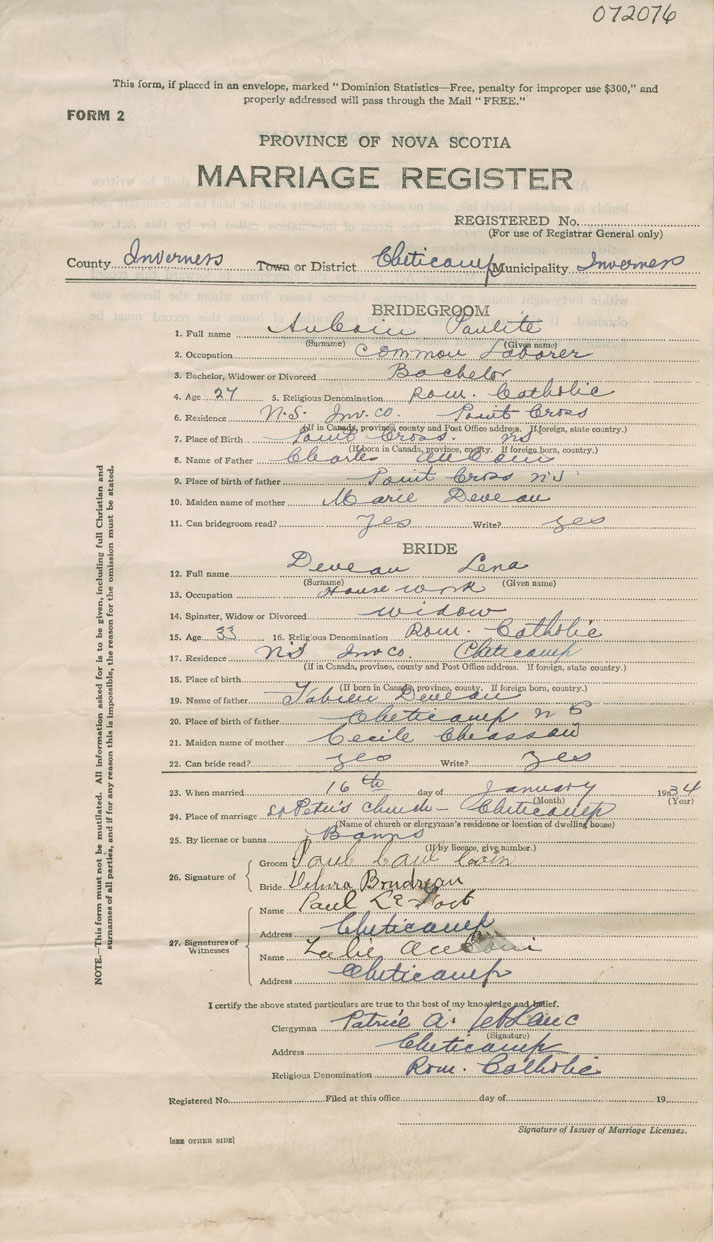 072076
This form, if placed in an envelope, marked "Dominion Statistics—Free, penalty for improper use $300," and
properly addressed will pass through the Mail "FREE."
FORM 2
PROVINCE OF NOVA SCOTIA
MARRIAGE REGISTER
REGISTERED No.
(For use of Registrar General only)
County Inverness Town or District Cheticamp Municipality Inverness
BRIDEGROOM
1. Full name Aucoin Paulite
(Surname) (Given name)
2. Occupation Common Laborer
3. Bachelor, Widower or Divorced Bachelor
4. Age 27 5. Religious Denomination Rom. Catholic
6. Residence N.S. Inv. co. Point Cross
(If in Canada, province, county and Post Office address. If foreign, state country.)
7. Place of Birth Point Cross. NS
(If born in Canada, province, county. If foreign born, country.)
8. Name of Father Charles Aucoin
9. Place of birth of father Point Cross NS
10. Maiden name of mother Marie Deveau
11. Can bridegroom read? Yes Write? yes
BRIDE
12. Full name Deveau Lena
(Surname) (Given name)
13. Occupation House work
14. Spinster, Widow or Divorced widow
15. Age 33 16. Religious Denomination Rom. Catholic
17. Residence NS Inv co. Cheticamp
(If in Canada, province, county and Post Office address. If foreign, state country.)
18. Place of Birth
(If born in Canada, province, county. If foreign born, country.)
19. Name of father Fabien Deveau
20. Place of birth of father Cheticamp NS
21. Maiden name of mother Cecile Chiasson
22. Can bride read? yes Write? yes
23. When married 16th day of January 1934
(Month) (Year)
24. Place of marriage St Peter's Church - Cheticamp
(Name of church or clergyman's residence or location of dwelling house)
25. By license or banns Banns
(If by licence, give number.)
26. Signature of
Groom Paul
Bride Boudreau
27. Signatures of Witnesses
Name Paul LeFort
Address Cheticamp
Name
Address Cheticamp
I certify the above stated particulars are true to the best of my knowledge and belief.
Clergyman A. LeBlanc
(Signature)
Address Cheticamp
Religious Denomination Rom. Catholic
Registered No. Filed at this office day of 19
Signature of Issuer of Marriage Licenses.
[SEE OTHER SIDE]
NOTE.—This form must not be mutilated. All information asked for is to be given, including full Christian and
surnames of all parties, and if for any reason this is impossible, the reason for the omission must be stated.